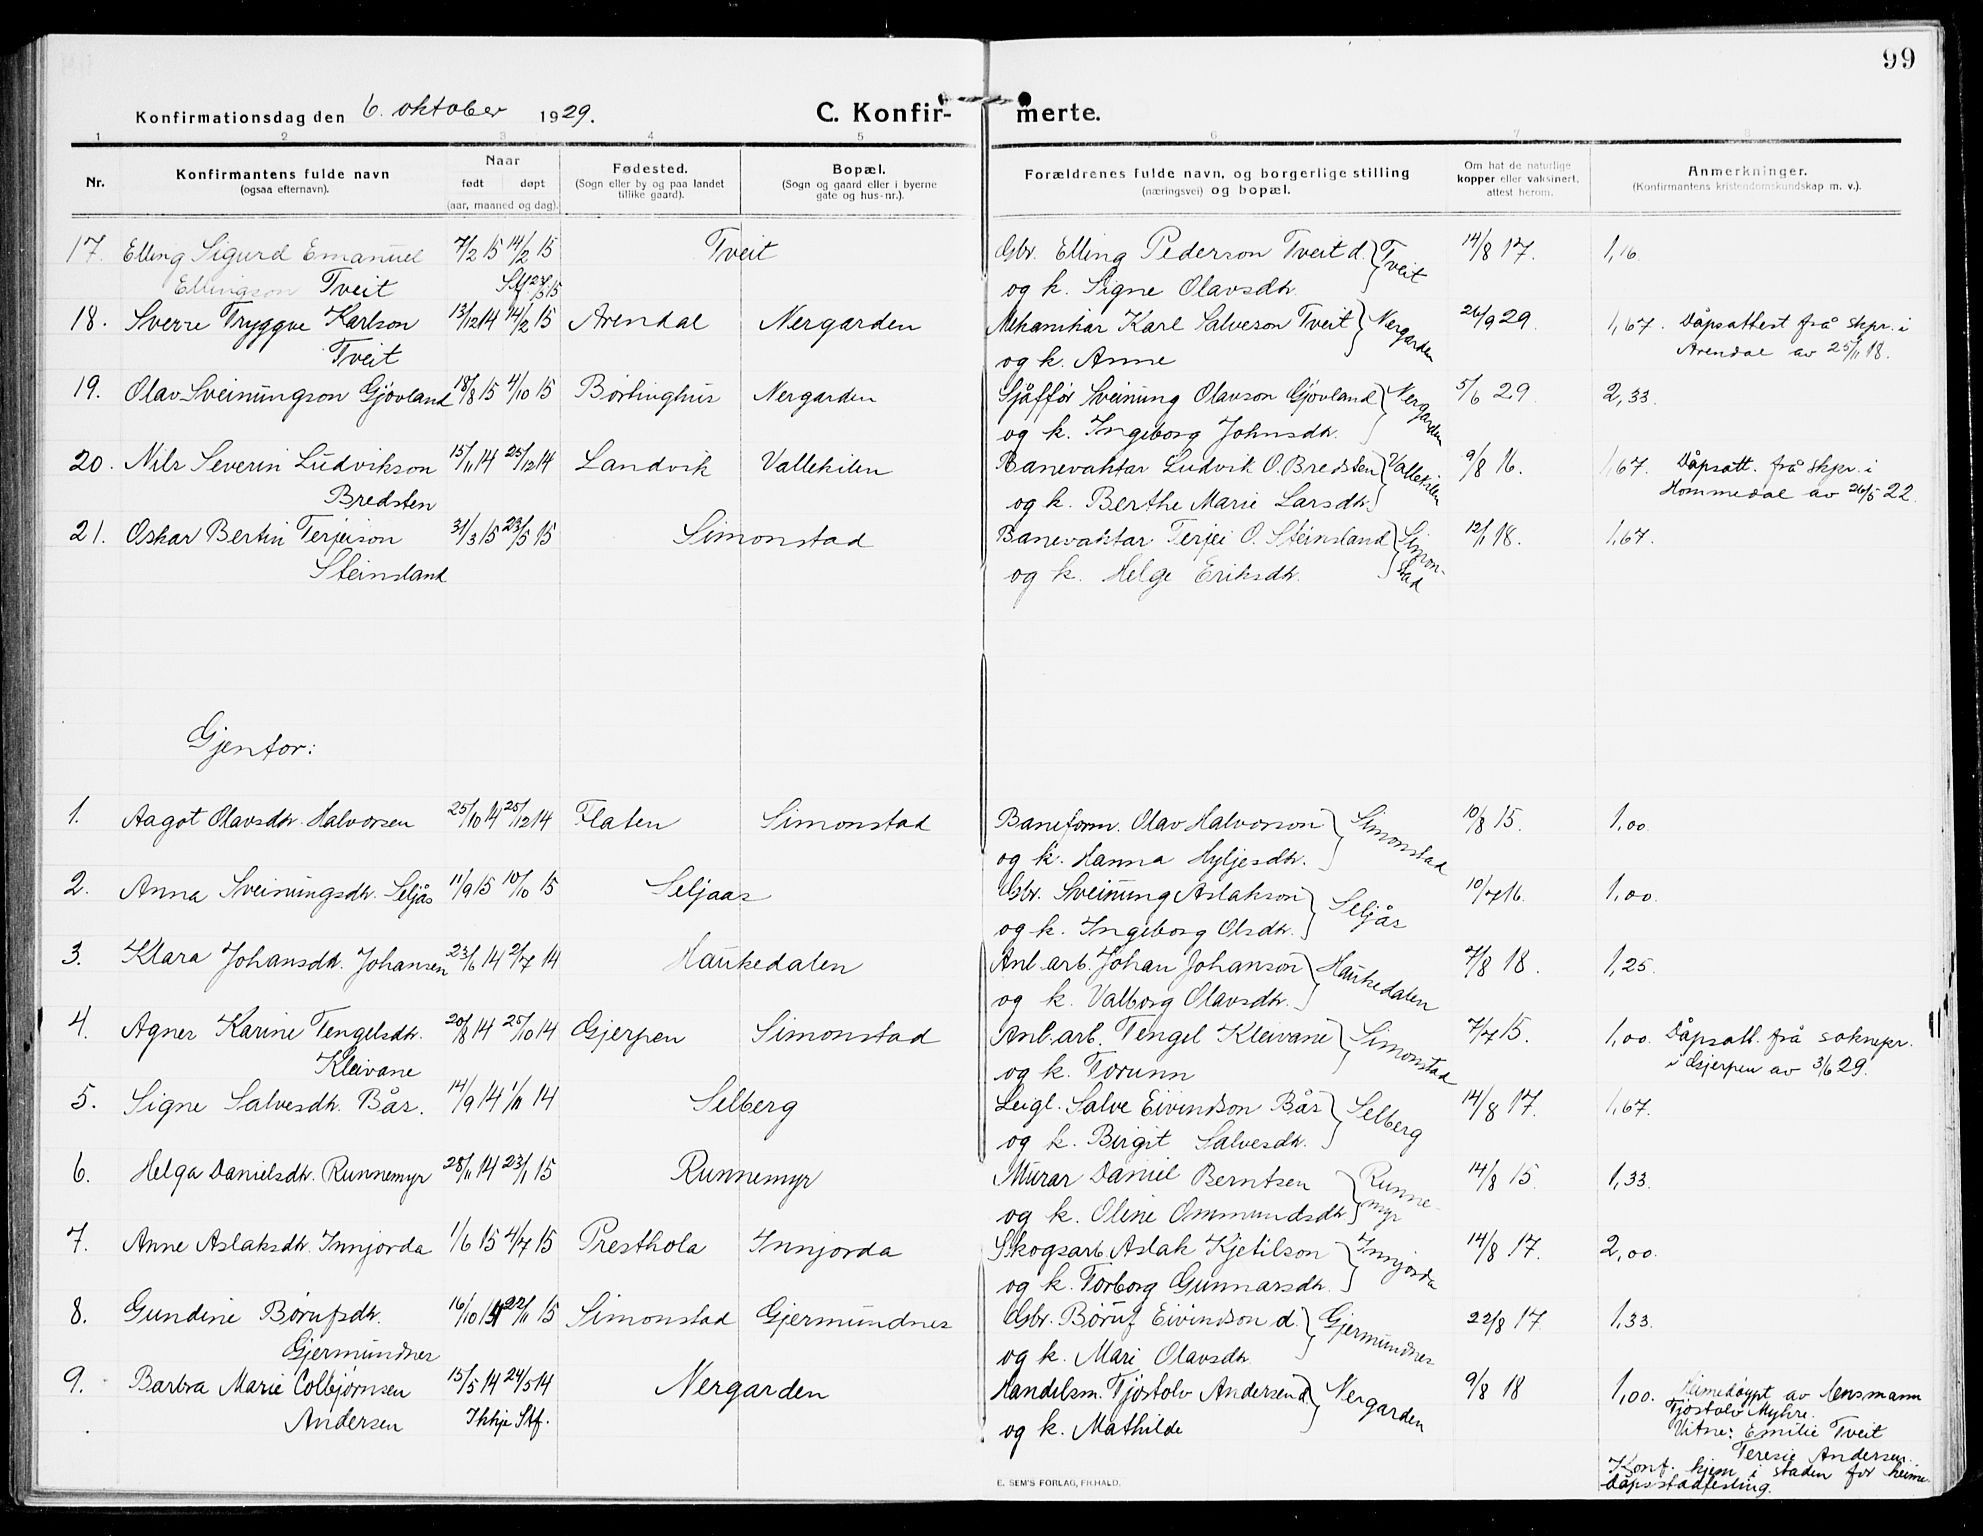 99
Konfirmationsdag den 6. oktober 1929. C. Konfir- merte.
1 2 3 4 5 6 7 8
Nr. Konfirmantens fulde navn (ogsaa efternavn). Naar født døpt (aar, maaned og dag). Fødested. (Sogn eller by og paa landet tillike gaard). Bopæl. (Sogn og gaard eller i byerne gate og hus-nr.). Forældrenes fulde navn, og borgerlige stilling (næringsvei) og bopæl. Om hat de naturlige kopper eller vaksinert, attest herom. Anmerkninger. (Konfirmantens kristendomskundskap m. v.).
17. Elling Sigurd Emanuel 7/2 15 14/2 15 Tveit Gbr. Elling Pederson Tveit d. } Tveit 14/8 17. 1,16.
Ellingson Tveit Stf. 23/5 15 og k. Signe Olavsdtr.
18. Sverre Tryggve Karlson 13/12 14 14/2 15 Arendal Nergarden Mekanikar Karl Salveson Tveit } Nergarden 26/9 29. 1,67. Dåpsattest frå skpr. i
Tveit og k. Anne Arendal av 25/11 18.
19. Olav Sveinungson Gjövland 18/8 15 4/10 15 Börtinghus Nergarden Sjåffør Sveinung Olavson Gjövland } Nergarden 5/6 29. 2,33.
og k. Ingeborg Johnsdtr.
20. Nils Severin Ludvikson 15/11 14 25/12 14 Landvik Vallekilen Banevaktar Ludvik O. Bredsten } Vallekilen 9/8 16. 1,67. Dåpsatt. frå skpr. i
Bredsten og k. Berthe Marie Larsdtr. Hommedal av 26/5 22.
21. Oskar Bertin Terjeison 31/3 15 23/5 15 Simonstad Banevaktar Terjei O. Steinsland } Simon-stad 12/1 18. 1,67.
Steinsland og k. Helge Eriksdtr.
Gjentor:
1. Aagot Olavsdtr. Halvorsen 25/10 14 25/12 14 Flaten Simonstad Baneform. Olav Halvorson } Simonstad 10/8 15. 1,00.
og k. Hanna Hyljesdtr.
2. Anna Sveinungsdtr. Seljås 11/9 15 10/10 15 Seljaas Gbr. Sveinung Aslakson } Seljås 10/7 16. 1,00.
og k. Ingeborg Olsdtr.
3. Klara Johansdtr. Johansen 23/6 14 2/7 14 Haukedalen Anl. arb. Johan Johanson } Haukedalen 7/8 18. 1,25.
og k. Valborg Olavsdtr.
4. Agnes Karine Tengelsdtr. 20/8 14 25/10 14 Gjerpen Simonstad Anl. arb. Tengel Kleivane } Simonstad 7/7 15. 1,00. Dåpsatt. frå soknepr.
Kleivane og k. Torunn i Gjerpen av 3/6 29.
5. Signe Salvesdtr. Bås. 14/9 14 1/11 14 Selberg Leigl. Salve Eivindson Bås } Selberg 14/8 17. 1,67.
og k. Birgit Salvesdtr.
6. Helga Danielsdtr. Runnemyr 28/11 14 23/1 15 Runnemyr Murar Daniel Berntsen } Runne-myr 14/8 15. 1,33.
og k. Oline Ommundsdtr.
7. Anne Aslaksdtr. Innjorda 1/6 15 4/7 15 Presthola Innjorda Skogsarb. Aslak Kjetilson } Innjorda 14/8 17. 2,00.
og k. Torborg Gunnarsdtr.
8. Gundine Børufsdtr. 16/10 14 22/11 15 Simonstad Gjermundnes Gbr. Böruf Eivindson d. } Gjermundnes 22/8 17. 1,33.
Gjermundnes og k. Mari Olavsdtr.
9. Barbra Marie Colbjørnsen 15/5 14 24/5 14 Nergarden Handelsm. Tjöstolv Andersen d. } Nergarden 9/8 18 1,00. Heimedøypt av lensmann
Andersen Ikkje Stf. og k. Mathilde Tjöstolv Myhre.
Vitne: Emilie Tveit
Teresie Andersen.
Konf. kjem i staden for heime-
dåpsstadfesting.
E. SEM'S FORLAG, FR.HALD.